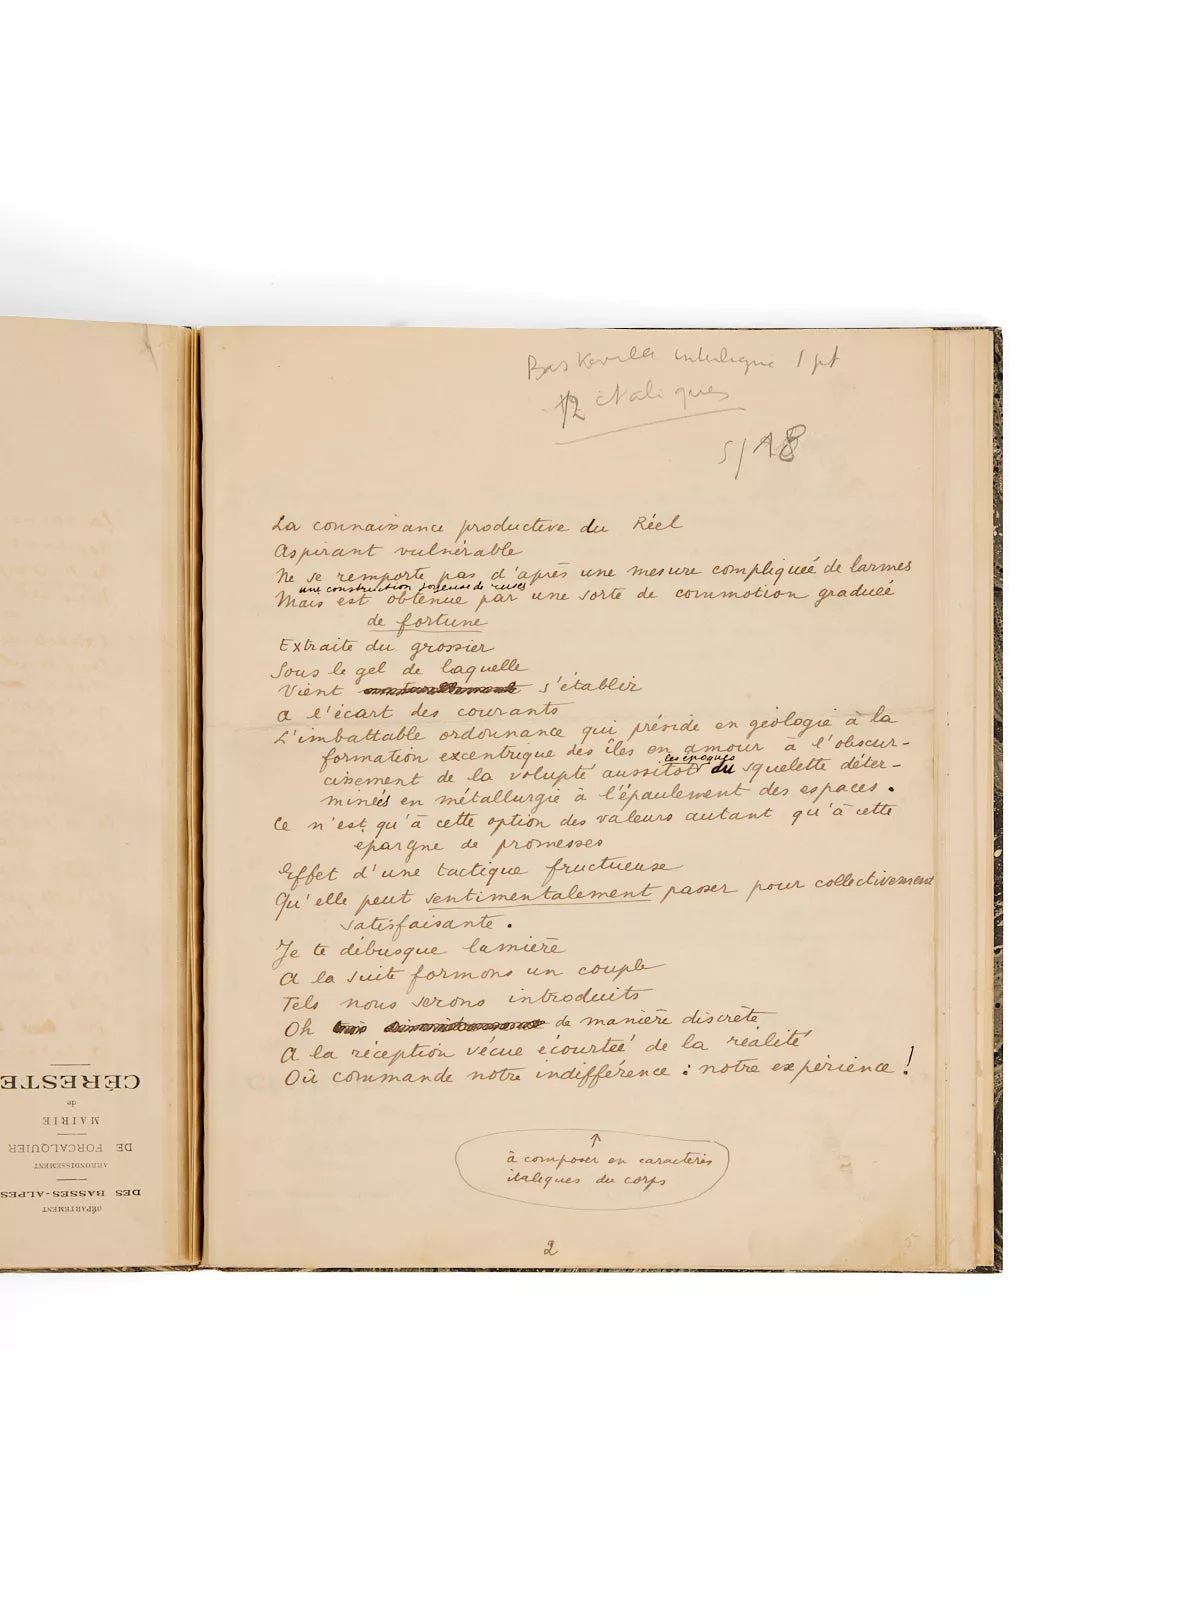 Baskerville interligné 1 pt
12 italiques
S/18
La connaissance productive du Réel
Aspirant vulnérable
Ne se remporte pas d'après une mesure compliquée de larmes
une construction joyeuse de ruses
Mais est obtenue par une sorte de commotion graduée
de fortune
Extraite du grossier
Sous le gel de laquelle
Vient s'établir
A l'écart des courants
L'imbattable ordonnance qui préside en géologie à la
formation excentrique des îles en amour à l'obscur-
cissement de la volupté aussitôt du squelette déter-
les époques
minées en métallurgie à l'épaulement des espaces.
Ce n'est qu'à cette option des valeurs autant qu'à cette
épargne de promesses
Effet d'une tactique fructueuse
Qu'elle peut sentimentalement passer pour collectivement
satisfaisante.
Je te débusque lumière
A la suite formons un couple
Tels nous serons introduits
Oh de manière discrète
A la réception vécue écourtée de la réalité
Où commande notre indifférence : notre expérience !
à composer en caractères
italiques du corps
2
5
CÉRESTE
de
MAIRIE
DE FORCALQUIER
ARRONDISSEMENT
DES BASSES-ALPES
DÉPARTEMENT